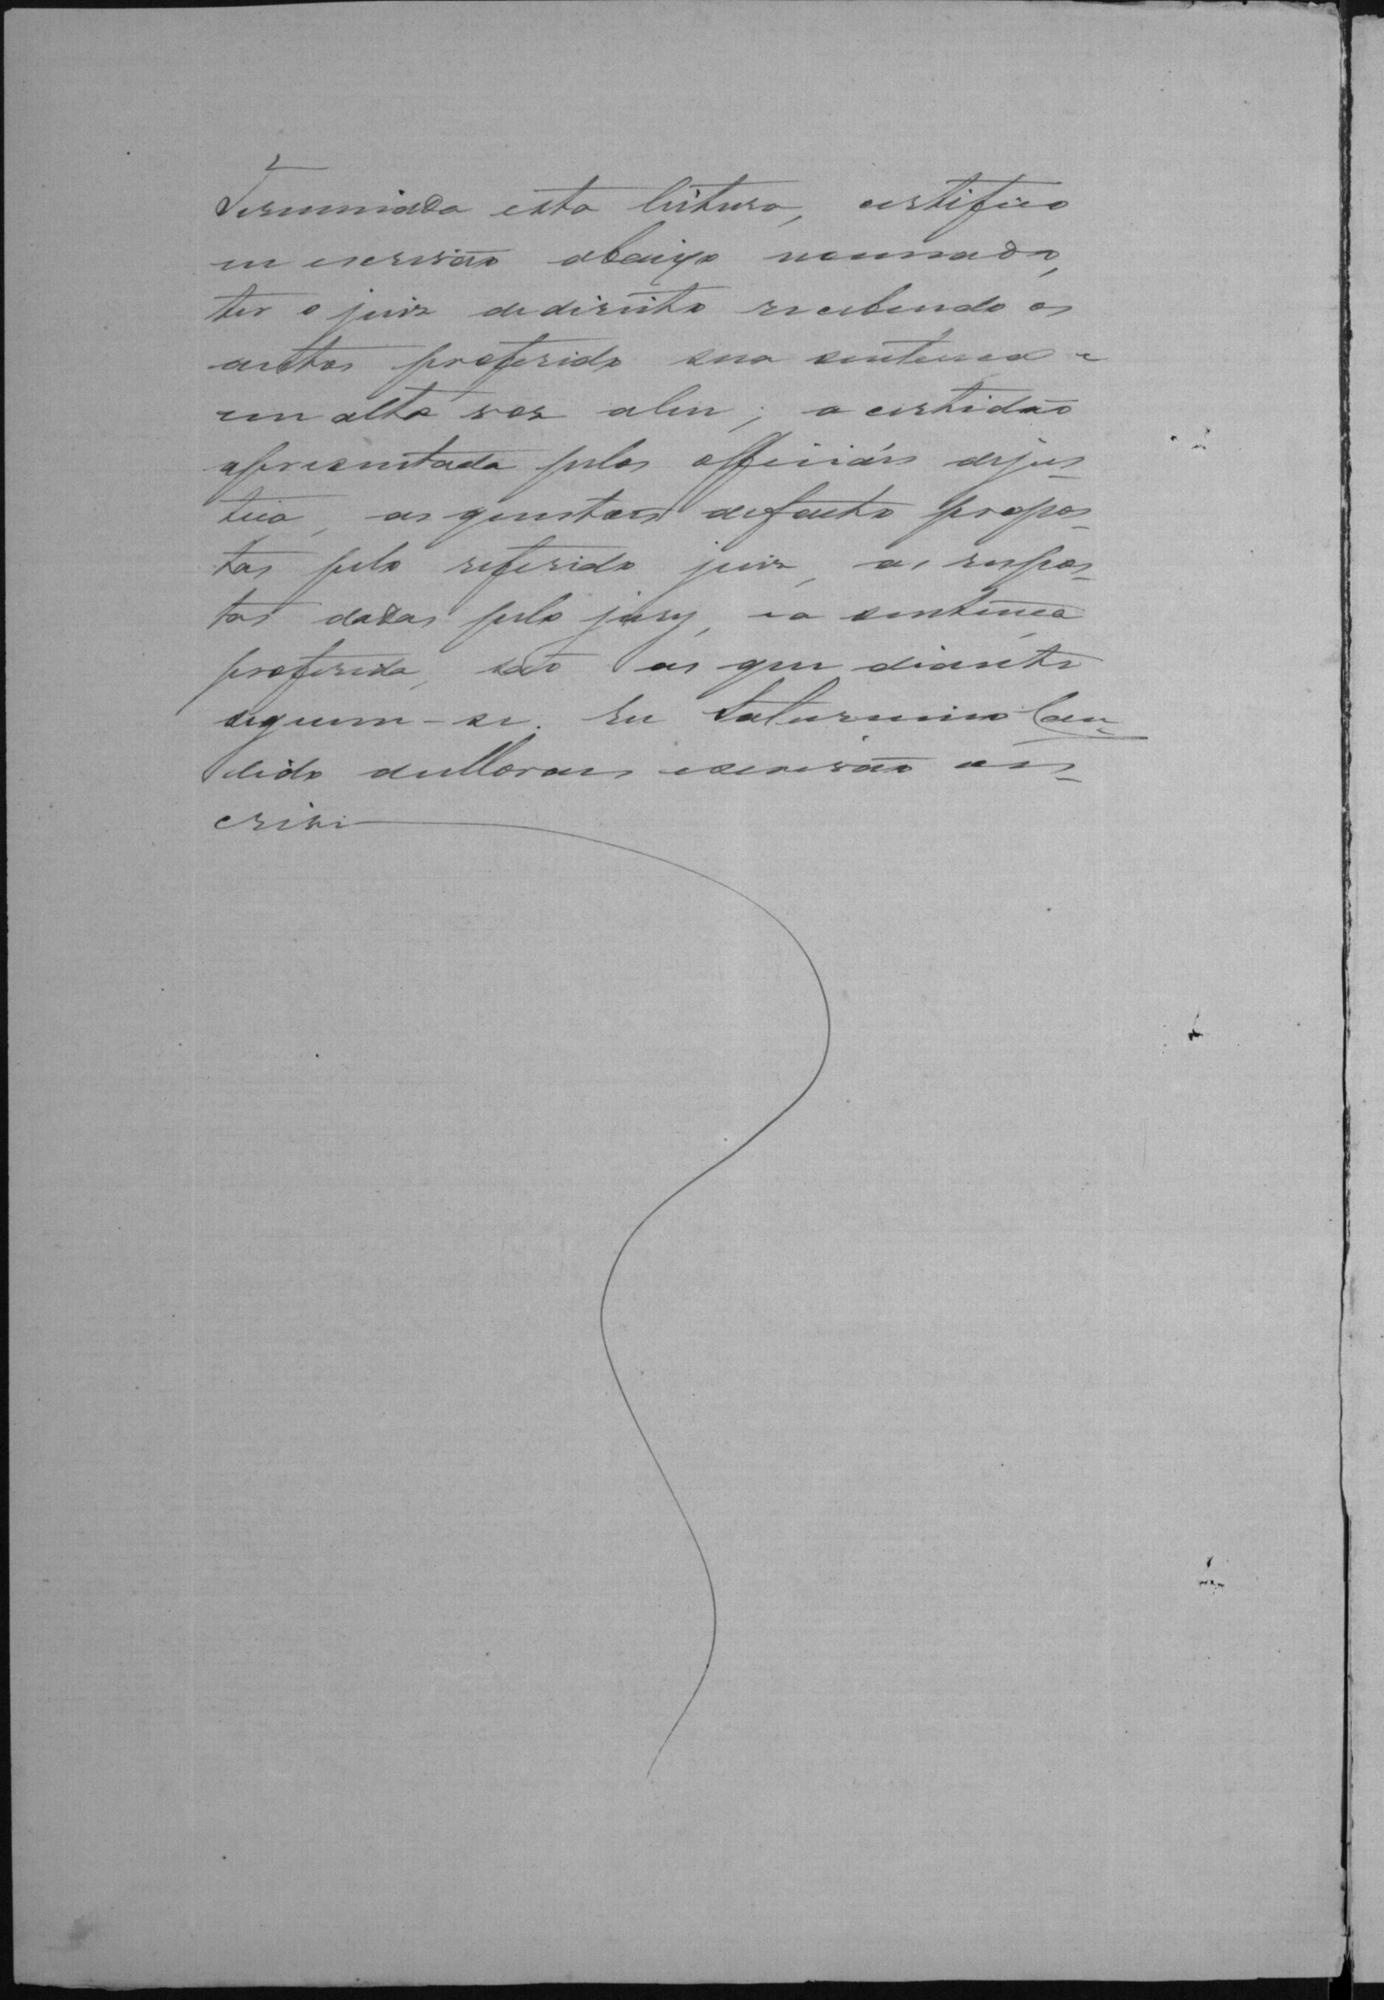 Terminada esta leitura, certifico
eu escrivão abaixo nomeado,
ter o juiz de direito recebendo os
autos proferido sua sentença e
em alta voz a leu; a certidão
apresentada pelos officiáes de jus-
tiça, as questões de facto propos-
tas pelo referido juiz, as respos-
tas dadas pelo jury, e a sentença
proferida, são as que diante
seguem-se. Eu Saturnino Can-
dido de Moraes escrivão o es-
crivi